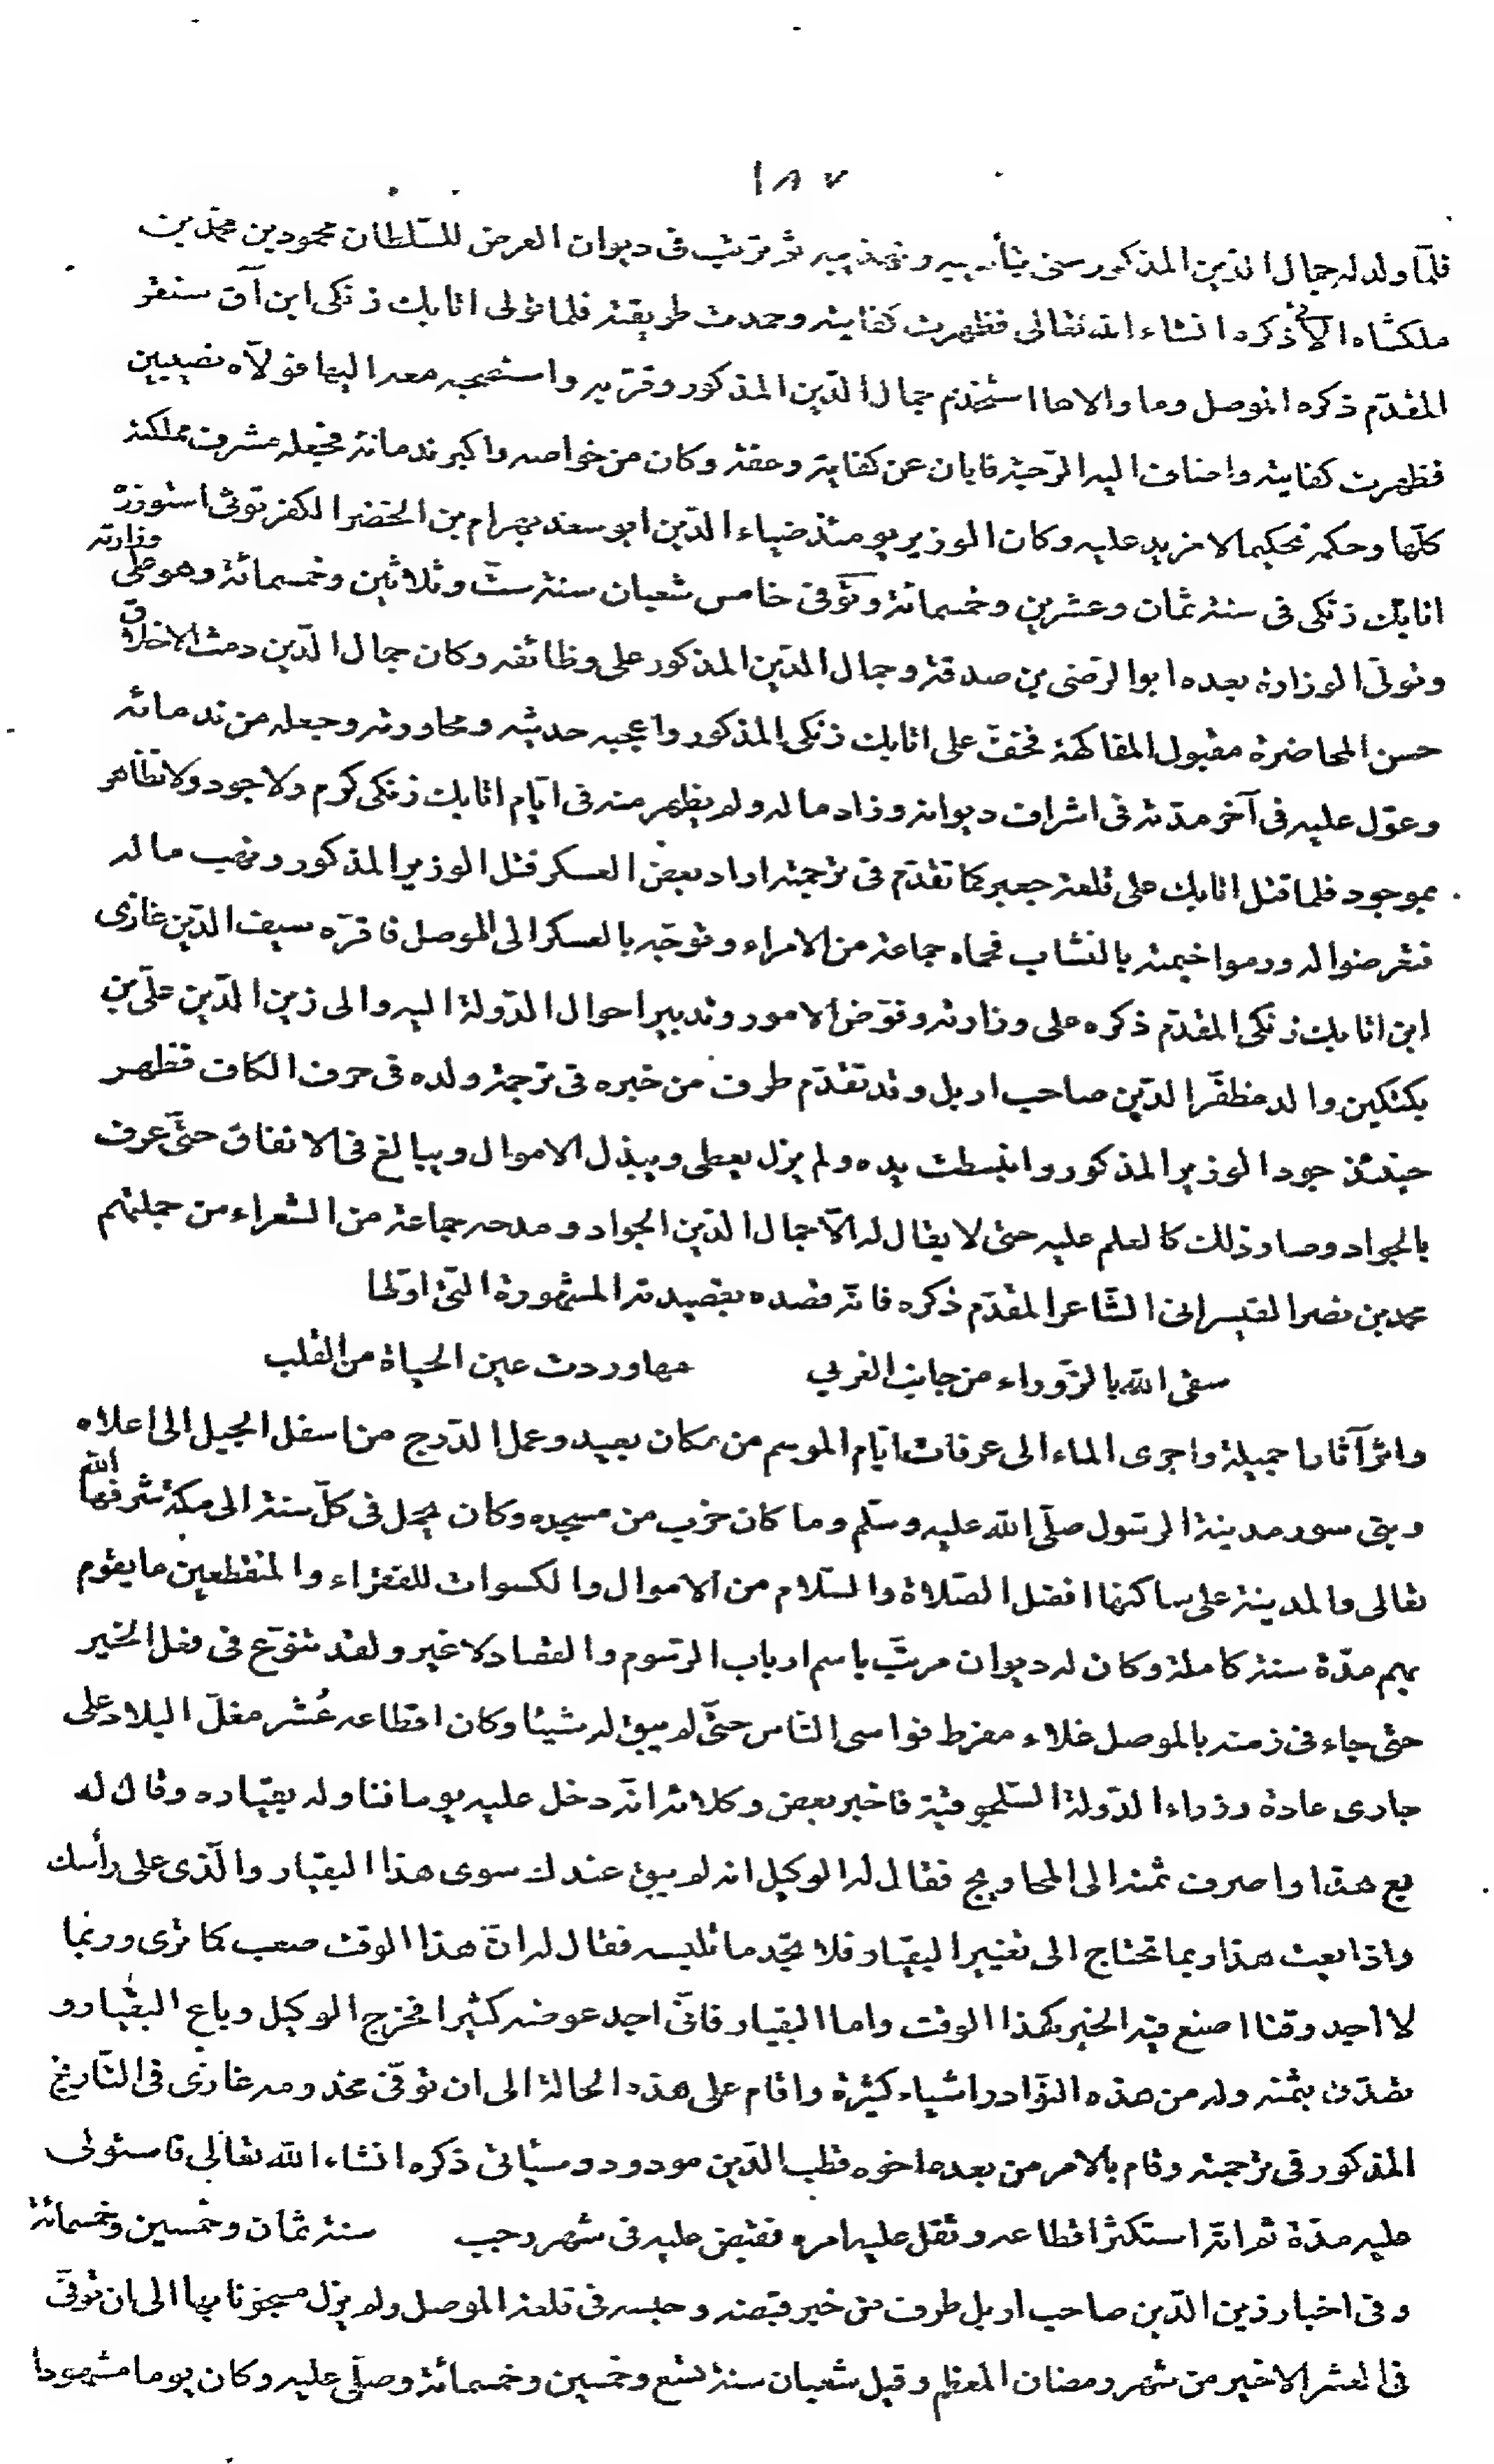 ١٨٧
فلمّا ولد له جمال الدّين المذكور سنى بتأديبه وتهذيبه ثم ترتب فى ديوان العرض للسّلطان محمود بن محمّد بن
ملكشاه الآتى ذكره انشاء الله تعالى فظهرت كفايته وحمدت طريقته فلما تولى اتابك زنكى ابن آق سنقر
المقدّم ذكره الموصل وما والاها استخدم جمال الدّين المذكور وقرّبه واستصحبه معه اليها فولاّه نصيبين
فظهرت كفايته واضاف اليه الرّحبة فابان عن كفاية وعفّة وكان من خواصه واكبر ندمائه فجعله مشرف مملكته
كلّها وحكمه تحكيما لا مزيد عليه وكان الوزير يومئذ ضياء الدّين ابو سعد بهرام بن الخضر الكفرتوثى استوزره
اتابك زنكى فى سنة ثمان وعشرين وخمسمائة وتوفى خامس شعبان سنة ستّ وثلاثين وخمسمائة وهو على وزارته
وتولّى الوزارة بعده ابو الرّضى بن صدقة وجمال الدّين المذكور على وظائفه وكان جمال الدّين دمث الاخلاق
حسن المحاضرة مقبول المفاكهة فخفّ على اتابك زنكى المذكور واعجبه حديثه ومحاورته وجعله من ندمائه
وعوّل عليه فى آخر مدّته فى اشراف ديوانه وزاد ماله ولم يظهر منه فى ايّام اتابك زنكى كرم ولا جود ولا تظاهر
بموجود فلما قتل اتابك على قلعة جعبر كما تقدّم فى ترجمته اراد بعض العسكر قتل الوزير المذكور ونهب ماله
فتعرضوا له ورموا خيمته بالنشّاب فحماه جماعة من الامراء وتوجّه بالعسكر الى الموصل فاقرّه سيف الدّين غازى
ابن اتابك زنكى المقدّم ذكره على وزارته وفوّض الامور وتدبير احوال الدّولة اليه والى زين الدّين علىّ بن
بكتكين والد مظفّر الدّين صاحب اربل وقد تقدّم طرف من خبره فى ترجمة ولده فى حرف الكاف فظهر
حينئذ جود الوزير المذكور وانبسطت يده ولم يزل يعطى ويبذل الاموال ويبالغ فى الانفاق حتّى عرف
بالجواد وصار ذلك كالعلم عليه حتى لا يقال له الاّ جمال الدّين الجواد ومدحه جماعة من الشّعراء من جملتهم
محمد بن نصر القيسرانى الشّاعر المقدّم ذكره فانّه قصده بقصيدته المشهورة الّتى اوّلها
سقى الله بالزّوراء من جانب الغربى      مها وردت عين الحياة من القلب
واثر آثارا جميلة واجرى الماء الى عرفات ايّام الموسم من مكان بعيد وعمل الدّرج من اسفل الجبل الى اعلاه
وبنى سور مدينة الرسّول صلّى الله عليه وسلّم وما كان خرب من مسجده وكان يحمل فى كلّ سنة الى مكة شرفها الله
تعالى والمدينة على ساكنها افضل الصّلاة والسّلام من الاموال والكسوات للفقراء والمنقطعين ما يقوم
بهم مدّة سنة كاملة وكان له ديوان مرتّب باسم ارباب الرسّوم والقصاد لا غير ولقد تنوّع فى فعل الخير
حتى جاء فى زمنه بالموصل غلاء مفرط فواسى النّاس حتّى لم يبق له شيئا وكان اقطاعه عُشر مغلّ البلاد على
جارى عادة وزراء الدّولة السّلجوقيّة فاخبر بعض وكلائه انّه دخل عليه يوما فناوله بقيّاره وقال له
بع هذا واصرف ثمنه الى المحاويج فقال له الوكيل انه لم يبق عندك سوى هذا البقيار والّذى على رأسك
واذا بعت هذا ربما تحتاج الى تغيير البقيّار فلا تجّد ما تلبسه فقال له انّ هذا الوقت صعب كما ترى وربّما
لا اجد وقتا اصنع فيه الخير كهذا الوقت واما البقيار فانّى اجد عوضه كثيرا فخرج الوكيل وباع البقيار و
تصدّق بثمنه وله من هذه النوّادر اشياء كثيرة واقام على هذه الحالة الى ان توفّى مخدومه غازى فى التّاريخ
المذكور فى ترجمته وقام بالامر من بعده اخوه قطب الدّين مودود وسيأتى ذكره انشاء الله تعالى فاستولى
عليه مدّة ثم انّه استكثر اقطاعه وثقل عليه امره فقبض عليه فى شهر رجب      سنة ثمان وخمسين وخمسمائة
وفى اخبار زين الدّين صاحب اربل طرف من خبر قبضه وحبسه فى قلعة الموصل ولم يزل مسجونا بها الى ان توفّى
فى العشر الاخير من شهر رمضان المعظم وقيل شعبان سنة تسع وخمسين وخمسمائة وصلّى عليه وكان يوما مشهودا